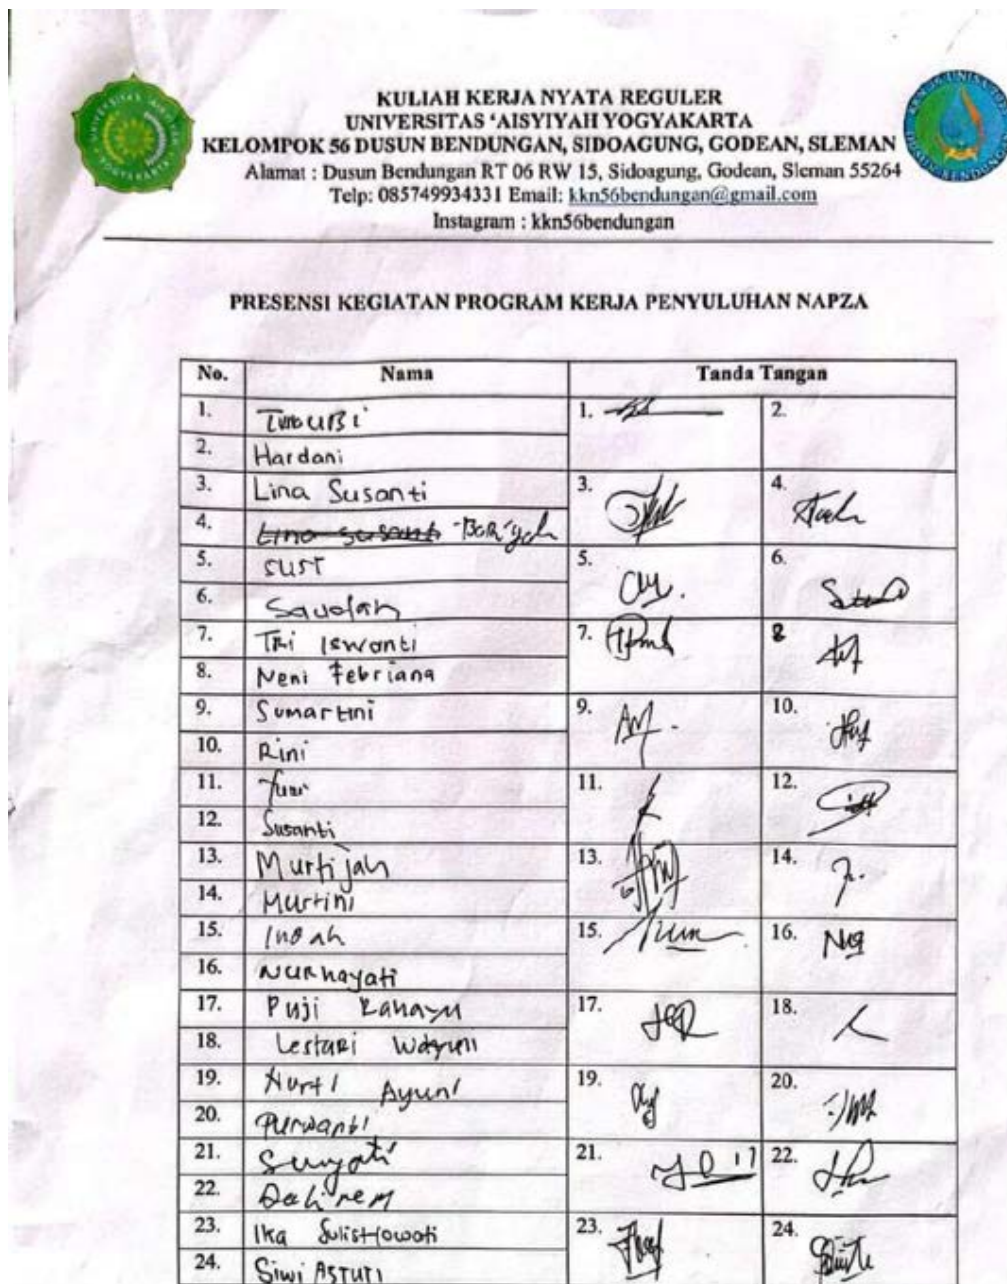 KULIAH KERJA NYATA REGULER
UNIVERSITAS ‘AISYIYAH YOGYAKARTA
KELOMPOK 56 DUSUN BENDUNGAN, SIDOAGUNG, GODEAN, SLEMAN
Alamat : Dusun Bendungan RT 06 RW 15, Sidoagung, Godean, Sleman 55264
Telp: 085749934331 Email: kkn56bendungan@gmail.com
Instagram : kkn56bendungan
PRESENSI KEGIATAN PROGRAM KERJA PENYULUHAN NAPZA
No. Nama Tanda Tangan
1. 1. 2.
2. Hardani
3. Lina Susanti 3. 4.
4. Lina Susanti
5. SUSI 5. 6.
6. Saudah
7. TRi Iswanti 7. 8
8. Neni Febriana
9. Sumartini 9. 10.
10. Rini
11. 11. 12.
12. Susanti
13. Murtijah 13. 14.
14. Murtini
15. Indah 15. 16.
16. NURHayati
17. Puji Rahayu 17. 18.
18. Lestari
19. Ayuni 19. 20.
20. Purwanti
21. Suryati 21. 22.
22.
23. Ika Sulistiowati 23. 24.
24. Siwi ASTUTI